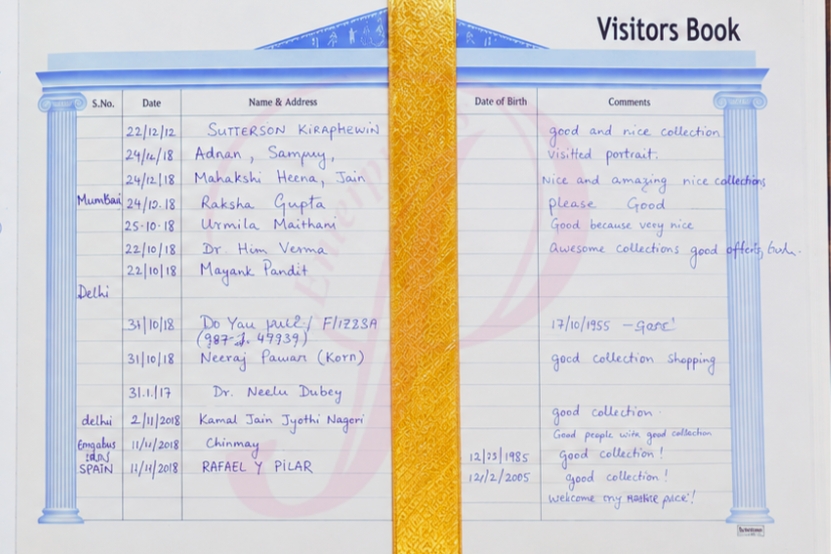 Visitors Book
S.No. Date Name & Address Date of Birth Comments
22/12/12 SUTTERSON KIRAPHEWIN good and nice collection.
24/12/18 Adnan, Sampuy, visitted portrait.
24/12/18 Mahakshi Heena, Jain Nice and amazing nice collections
Mumbai 24/10.18 Raksha Gupta please Good
25-10-18 Urmila Maithani Good because very nice
22/10/18 Dr. Him Verma Awesome collections good offers,
22/10/18 Mayank Pandit
Delhi
31/10/18 Do Yau 17/10/1955
31/10/18 Neeraj Pawan (Korn) good collection shopping
31.1./17 Dr. Neelu Dubey
delhi 2/11/2018 Kamal Jain Jyothi Nagori good collection.
Good people with good collection
11/11/2018 Chinmay 12/23/1985 Good collection!
SPAIN 11/11/2018 RAFAEL Y PILAR 12/2/2005 good collection!
Welcome my
Enterprises